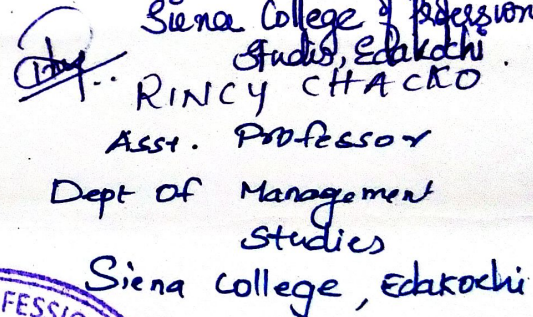 Siena College of Professional
Studies, Edakochi
RINCY CHACKO
Asst. Professor
Dept Of Management
Studies
Siena College, Edakochi
FESSIO